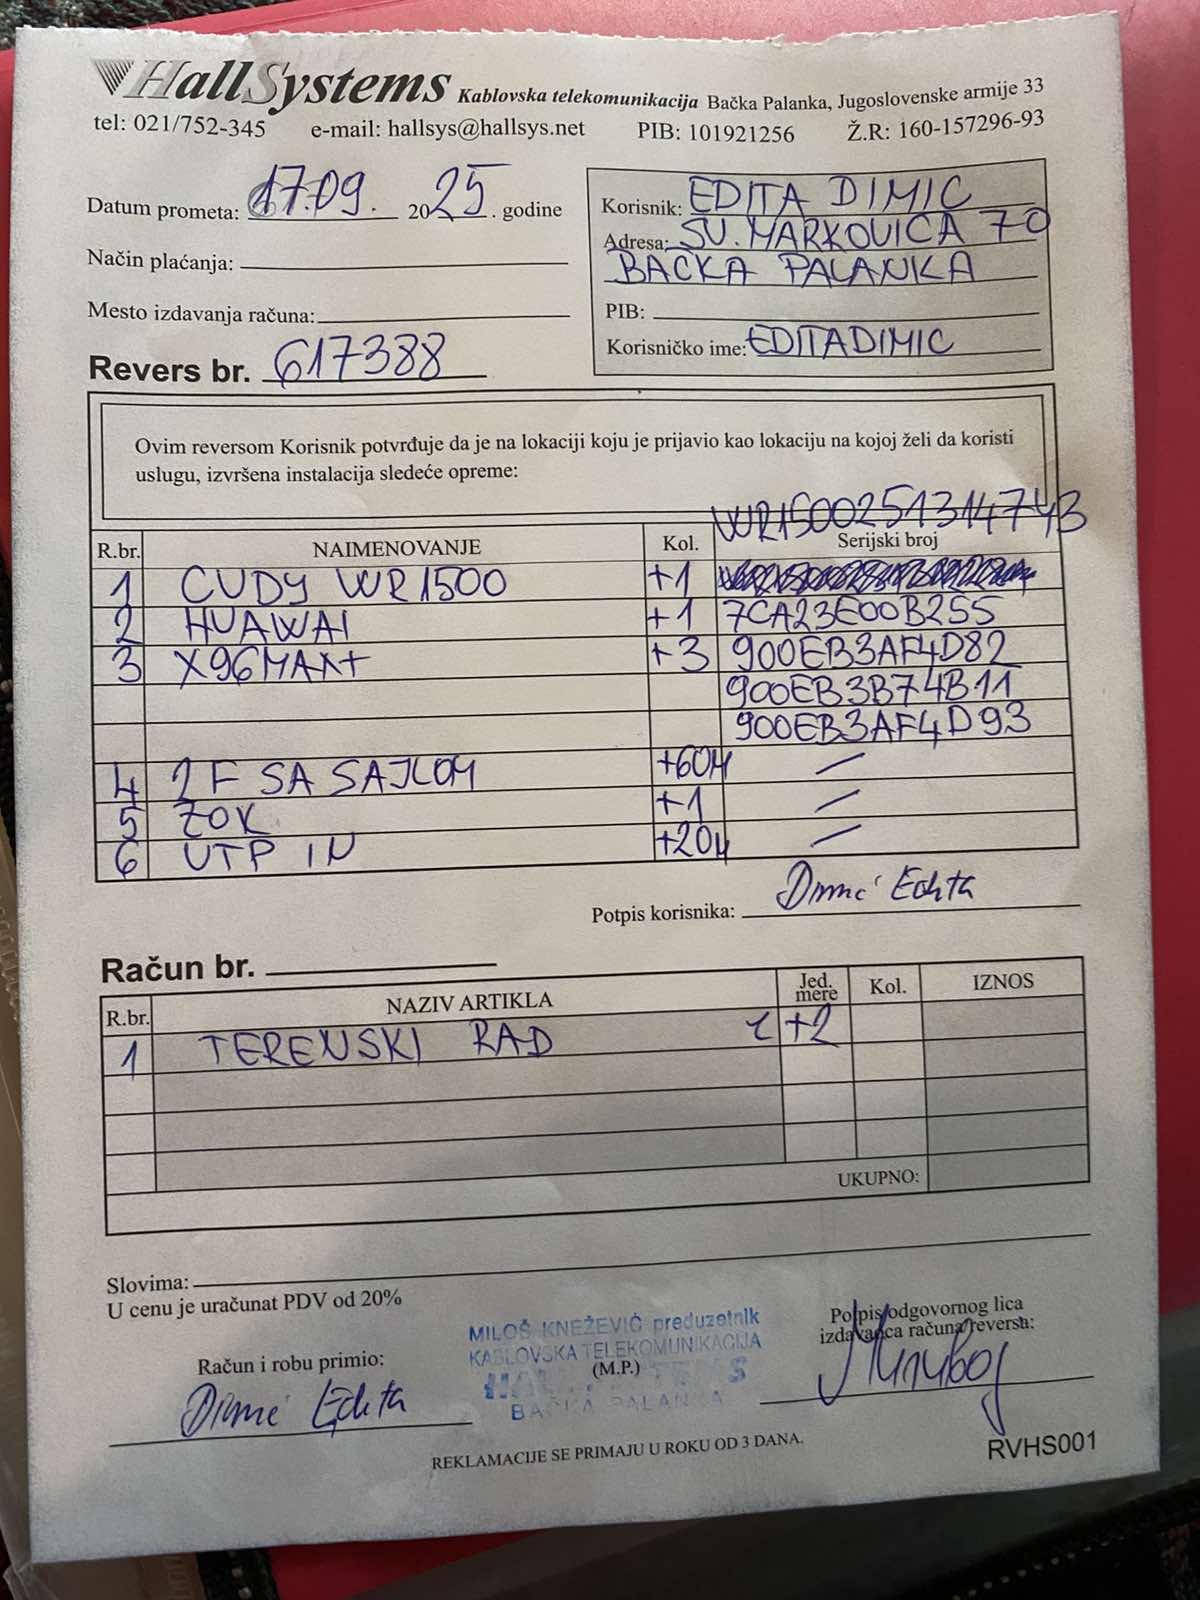 HallSystems Kablovska telekomunikacija Bačka Palanka, Jugoslovenske armije 33
tel: 021/752-345 e-mail: hallsys@hallsys.net PIB: 101921256 Ž.R: 160-157296-93
Datum prometa: 17.09. 2025. godine
Način plaćanja:
Mesto izdavanja računa:
Revers br. 617388
Korisnik: EDITA DIMIC
Adresa: SV. MARKOVICA 70
BACKA PALANKA
PIB:
Korisničko ime: EDITADIMIC
Ovim reversom Korisnik potvrđuje da je na lokaciji koju je prijavio kao lokaciju na kojoj želi da koristi
uslugu, izvršena instalacija sledeće opreme:
WR1500251314743
R.br. NAIMENOVANJE Kol. Serijski broj
1 CUDY WR1500 +1
2 HUAWAI +1 7CA23E00B255
3 X96MAX+ +3 900EB3AF4D82
900EB3B74B11
900EB3AF4D93
4 2F SA SAJLOM +60M /
5 ZOK +1 /
6 UTP IN +20M /
Potpis korisnika: Dimić Edita
Račun br.
R.br. NAZIV ARTIKLA Jed. mere Kol. IZNOS
1 TERENSKI RAD +2
UKUPNO:
Slovima:
U cenu je uračunat PDV od 20%
Račun i robu primio:
Dimić Edita
MILOŠ KNEŽEVIĆ preduzetnik
KABLOVSKA TELEKOMUNIKACIJA
(M.P.)
BAČKA PALANKA
Potpis odgovornog lica
izdavaoca računa/reversa:
REKLAMACIJE SE PRIMAJU U ROKU OD 3 DANA.
RVHS001